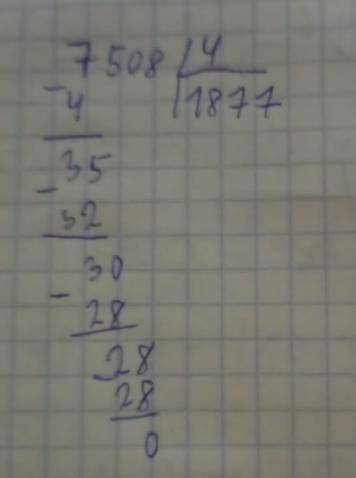 7508 4
- 4 1877
35
- 32
30
- 28
28
- 28
0